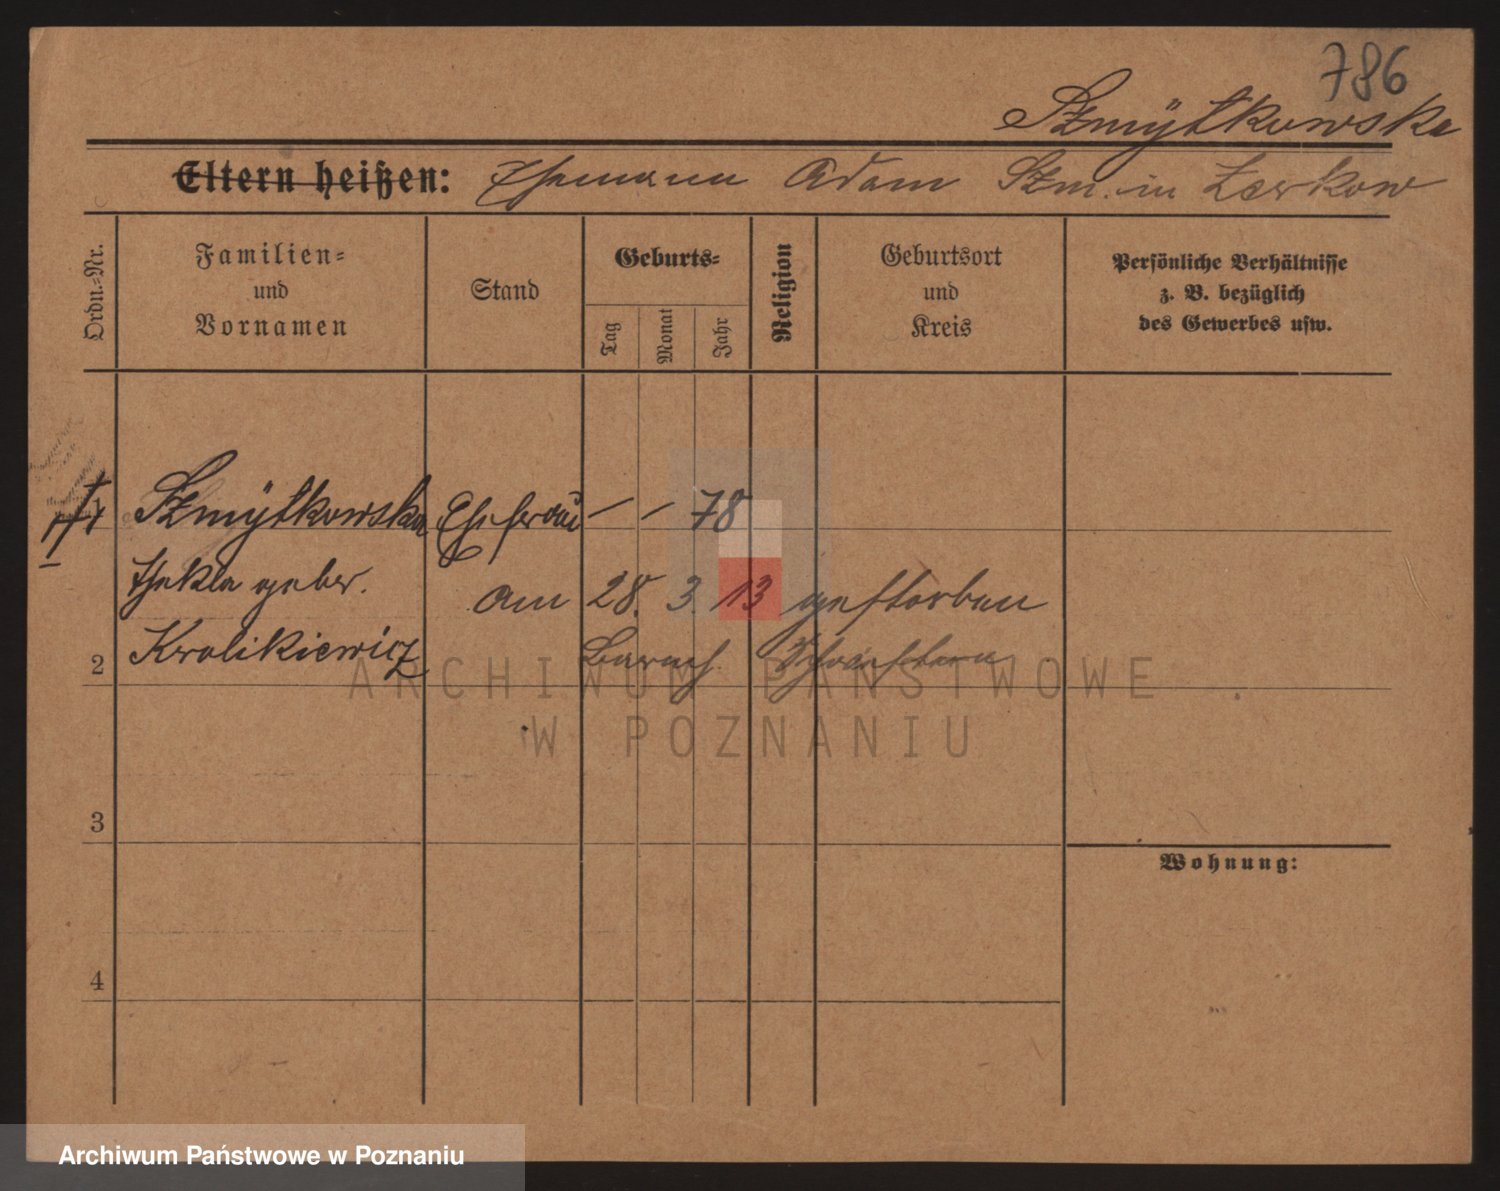 786
Szmÿtkowska
Eltern heißen: Ehemann Adam Szm. in Zerkow
Ordn.-Nr.
Familien-
und
Vornamen
Stand
Geburts-
Tag
Monat
Jahr
Religion
Geburtsort
und
Kreis
Persönliche Verhältnisse
z. B. bezüglich
des Gewerbes usw.
1 Szmÿtkowska Ehefrau – – 78
Thekla geber.
am 28. 3. 13 gestorben
2 Krolikiewicz
ARCHIWUM PAŃSTWOWE
W POZNANIU
3
Wohnung:
4
Archiwum Państwowe w Poznaniu